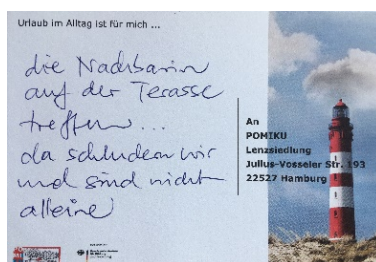 Urlaub im Alltag ist für mich ...
die Nachbarin
auf der Terasse
treffen...
da schludern wir
und sind nicht
alleine
An
POMIKU
Lenzsiedlung
Julius-Vosseler Str. 193
22527 Hamburg